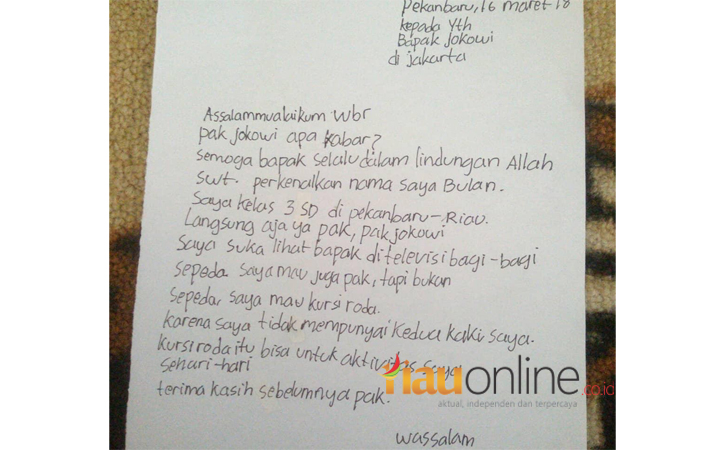 Pekanbaru, 16 maret 18
kepada Yth
Bapak Jokowi
di jakarta
Assalammualaikum wbr
pak jokowi apa kabar?
semoga bapak selalu dalam lindungan Allah
swt. perkenalkan nama saya Bulan.
Saya kelas 3 SD di pekanbaru-Riau.
Langsung aja ya pak, pak jokowi
saya suka lihat bapak ditelevisi bagi-bagi
sepeda. saya mau juga pak, tapi bukan
sepeda, saya mau kursi roda.
karena saya tidak mempunyai kedua kaki saya.
kursi roda itu bisa untuk aktivitas saya
sehari-hari
terima kasih sebelumnya pak.
wassalam
riauonline.co.id
aktual, independen dan terpercaya